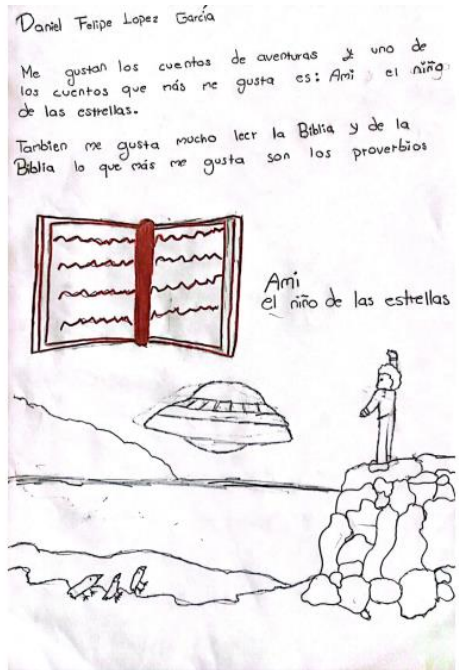 Daniel Felipe Lopez García
Me gustan los cuentos de aventuras y uno de
los cuentos que más me gusta es: Ami el niño
de las estrellas.
Tanbien me gusta mucho leer la Biblia y de la
Biblia lo que más me gusta son los proverbios
Ami
el niño de las estrellas